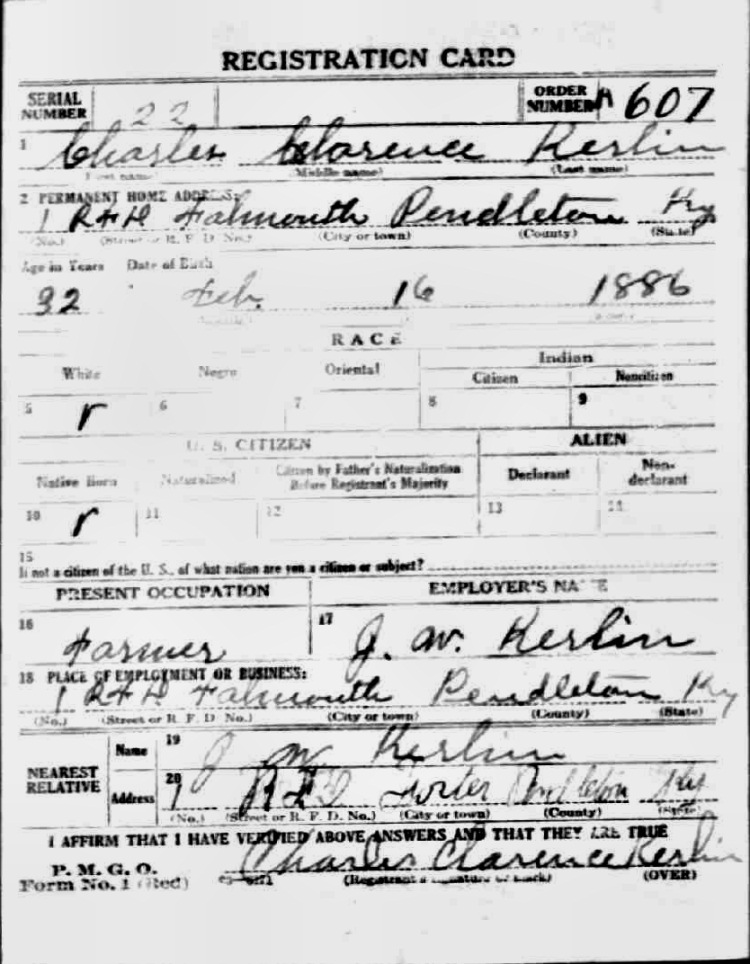 REGISTRATION CARD
SERIAL NUMBER 22 ORDER NUMBER A 607
1 Charles Clarence Kerlin
(First name) (Middle name) (Last name)
2 PERMANENT HOME ADDRESS:
1 RFD Falmouth Pendleton Ky
(No.) (Street or R. F. D. No.) (City or town) (County) (State)
Age in Years Date of Birth
32 Feb. 16 1886
RACE
White Negro Oriental Indian
Citizen Noncitizen
5 6 7 8 9
U. S. CITIZEN ALIEN
Native Born Naturalized Citizen by Father's Naturalization Before Registrant's Majority Declarant Non-declarant
10 11 12 13 14
15
If not a citizen of the U. S., of what nation are you a citizen or subject?
PRESENT OCCUPATION EMPLOYER'S NAME
16 Farmer 17 J. W. Kerlin
18 PLACE OF EMPLOYMENT OR BUSINESS:
1 RFD Falmouth Pendleton Ky
(No.) (Street or R. F. D. No.) (City or town) (County) (State)
NEAREST RELATIVE Name 19 J W Kerlin
Address 20 1 RFD Foster Pendleton Ky
(No.) (Street or R. F. D. No.) (City or town) (County) (State)
I AFFIRM THAT I HAVE VERIFIED ABOVE ANSWERS AND THAT THEY ARE TRUE
P. M. G. O. Charles Clarence Kerlin
Form No. 1 (Red) (Registrant's signature or mark) (OVER)